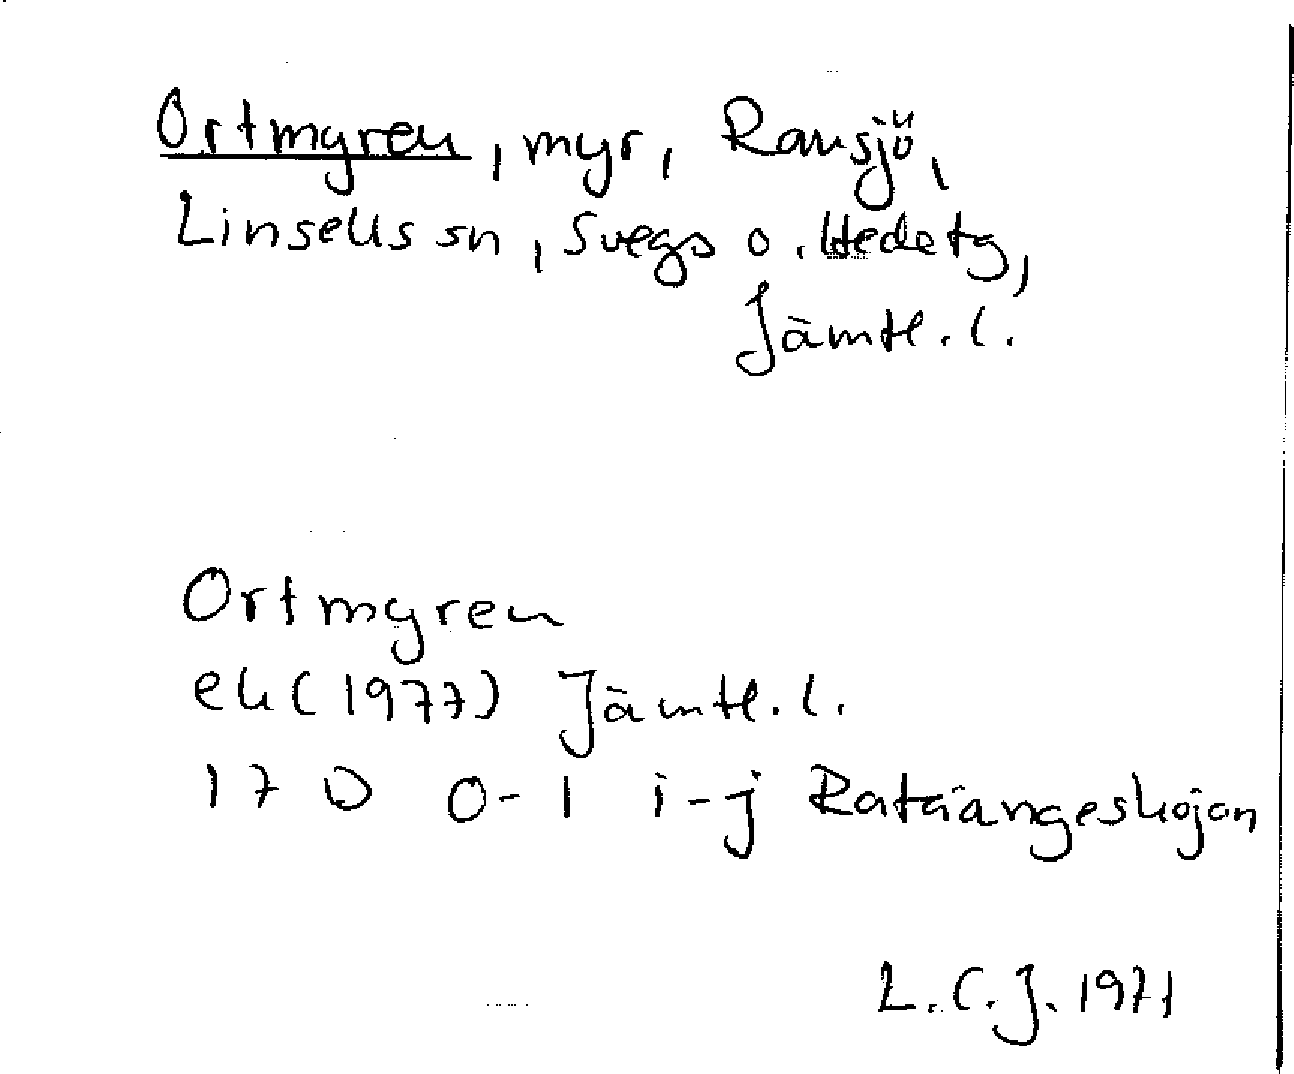 Ortmyren, myr, Ransjö,
Linsells sn, Svegs o. Hede tg,
Jämtl. l.
Ortmyren
ek (1977) Jämtl. l.
17 D 0-1 i-j Ratängeskojan
L.C.J. 1971